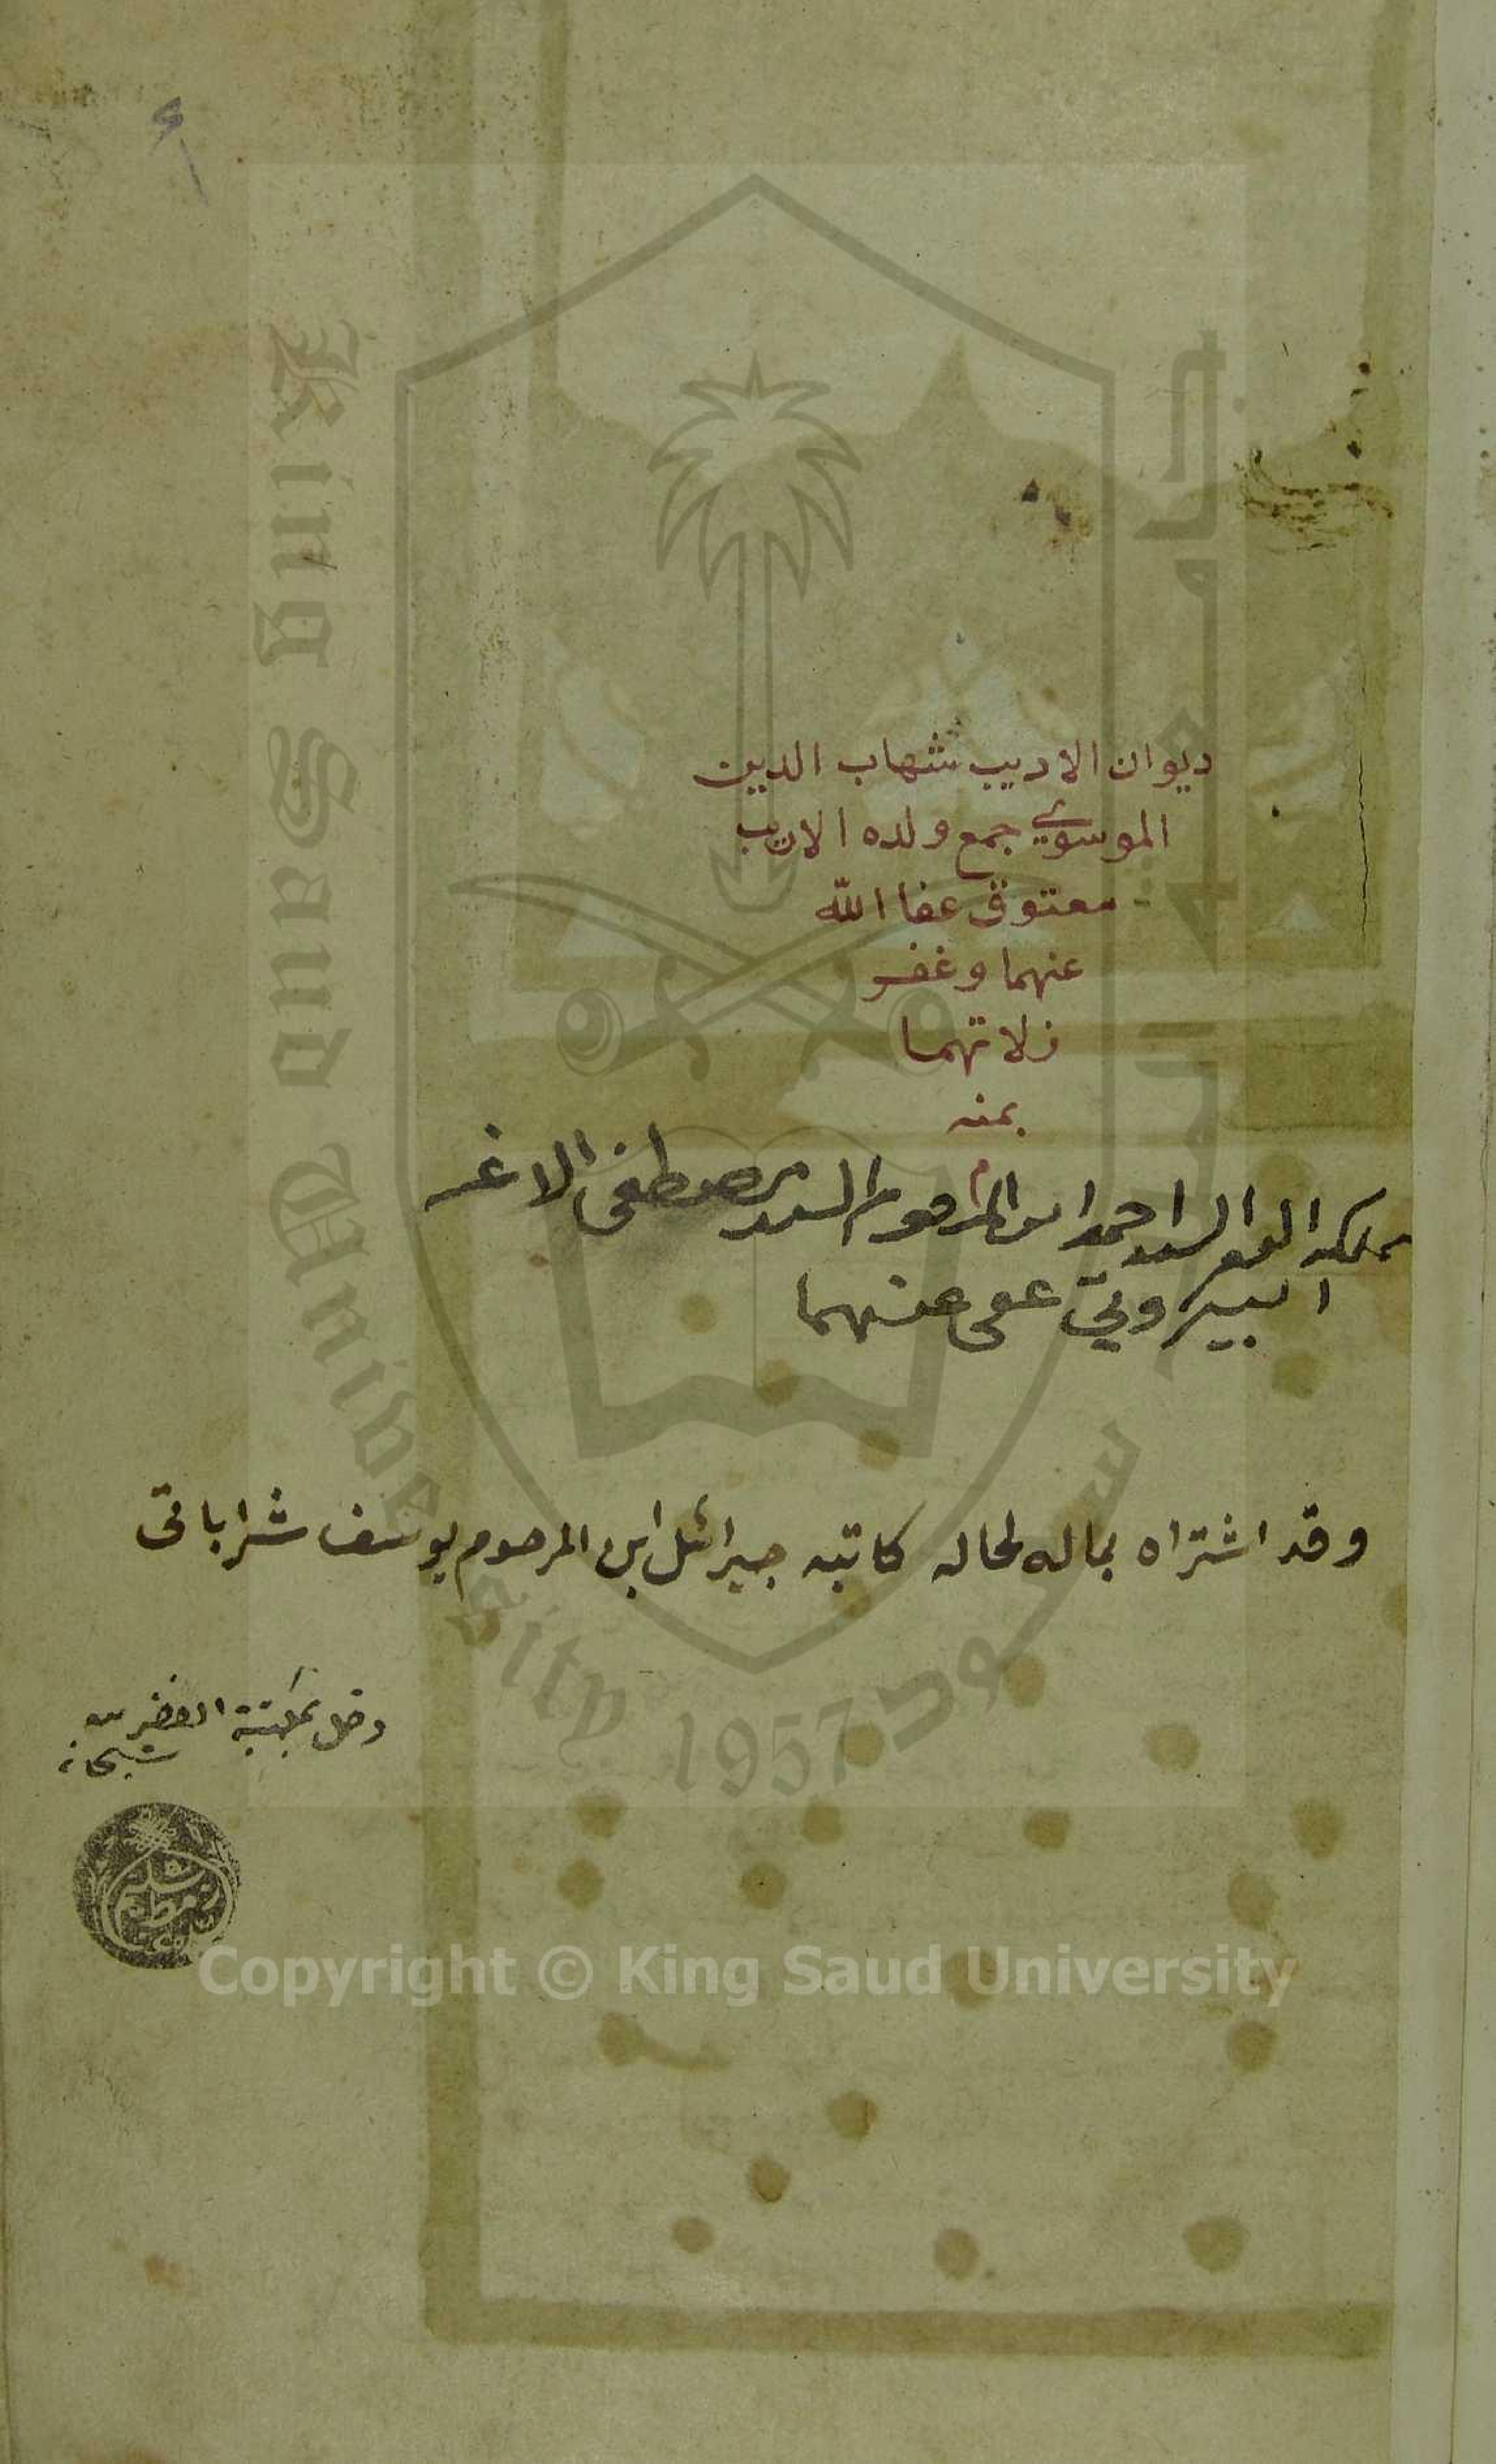 ديوان الاديب شهاب الدين
الموسوي جمع ولده الاديب
معتوق عفا الله
عنهما وغفر
زلاتهما
بمنه
م
تملكه الفقير السيد احمد ابن المرحوم السيد مصطفى الاغر
البيروتي عفى عنهما
وقد اشتراه بماله لحاله كاتبه جبرائل ابن المرحوم يوسف شراباتي
دخل بمكتبة الفقير
King Saud University
جامعة الملك سعود
1957
Copyright © King Saud University